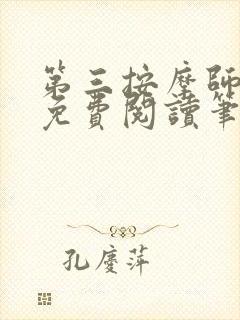 第三按摩師
免費閱讀筆
孔慶萍